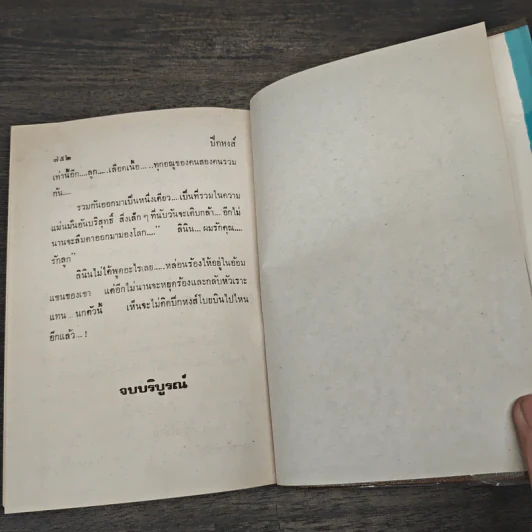 ๗๕๒
ปีกหงส์
เท่านี้อีก....ลูก.....เลือดเนื้อ.....ทุกอณูของคนสองคนรวม
กัน....
รวมกันออกมาเป็นหนึ่งเดียว....เป็นที่รวมในความ
แม่นมั่นอันบริสุทธิ์ สิ่งเล็ก ๆ ที่นับวันจะเติบกล้า... อีกไม่
นานจะลืมตาออกมามองโลก....” ลินิน... ผมรักคุณ....
รักลูก”
ลินินไม่ได้พูดอะไรเลย.....หล่อนร้องไห้อยู่ในอ้อม
แขนของเขา แต่อีกไม่นานจะหยุดร้องและกลับหัวเราะ
แทน .. นกตัวนี้ เห็นจะไม่คิดปีกหงส์โบยบินไปไหน
อีกแล้ว... !
จบบริบูรณ์